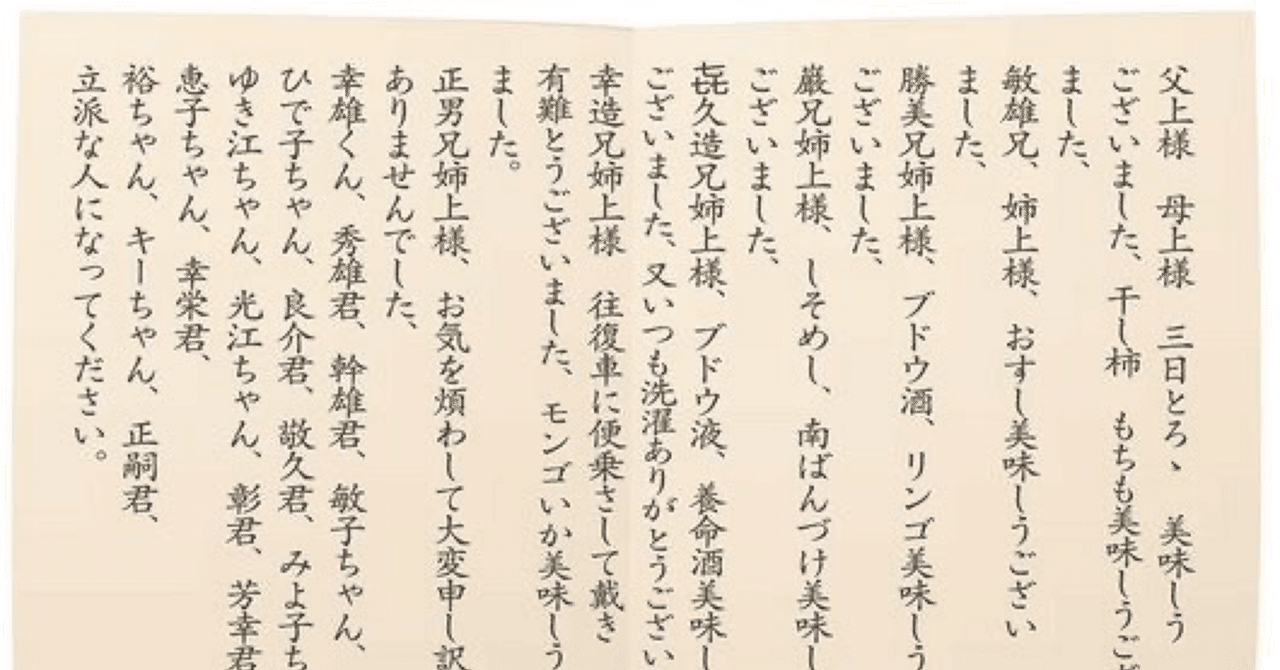 父上様　母上様　三日とろゝ　美味しう
ございました、干し柿　もちも美味しうご
ました、
敏雄兄、姉上様、おすし美味しうござい
ました、
勝美兄姉上様、ブドウ酒、リンゴ美味しう
ございました、
巌兄姉上様、しそめし、南ばんづけ美味し
ございました、
㐂久造兄姉上様、ブドウ液、養命酒美味し
ございました、又いつも洗濯ありがとうござい
幸造兄姉上様　往復車に便乗さして戴き
有難とうございました、モンゴいか美味しう
ました。
正男兄姉上様、お気を煩わして大変申し訳
ありませんでした、
幸雄くん、秀雄君、幹雄君、敏子ちゃん、
ひで子ちゃん、良介君、敬久君、みよ子ち
ゆき江ちゃん、光江ちゃん、彰君、芳幸君
恵子ちゃん、幸栄君、
裕ちゃん、キーちゃん、正嗣君、
立派な人になってください。